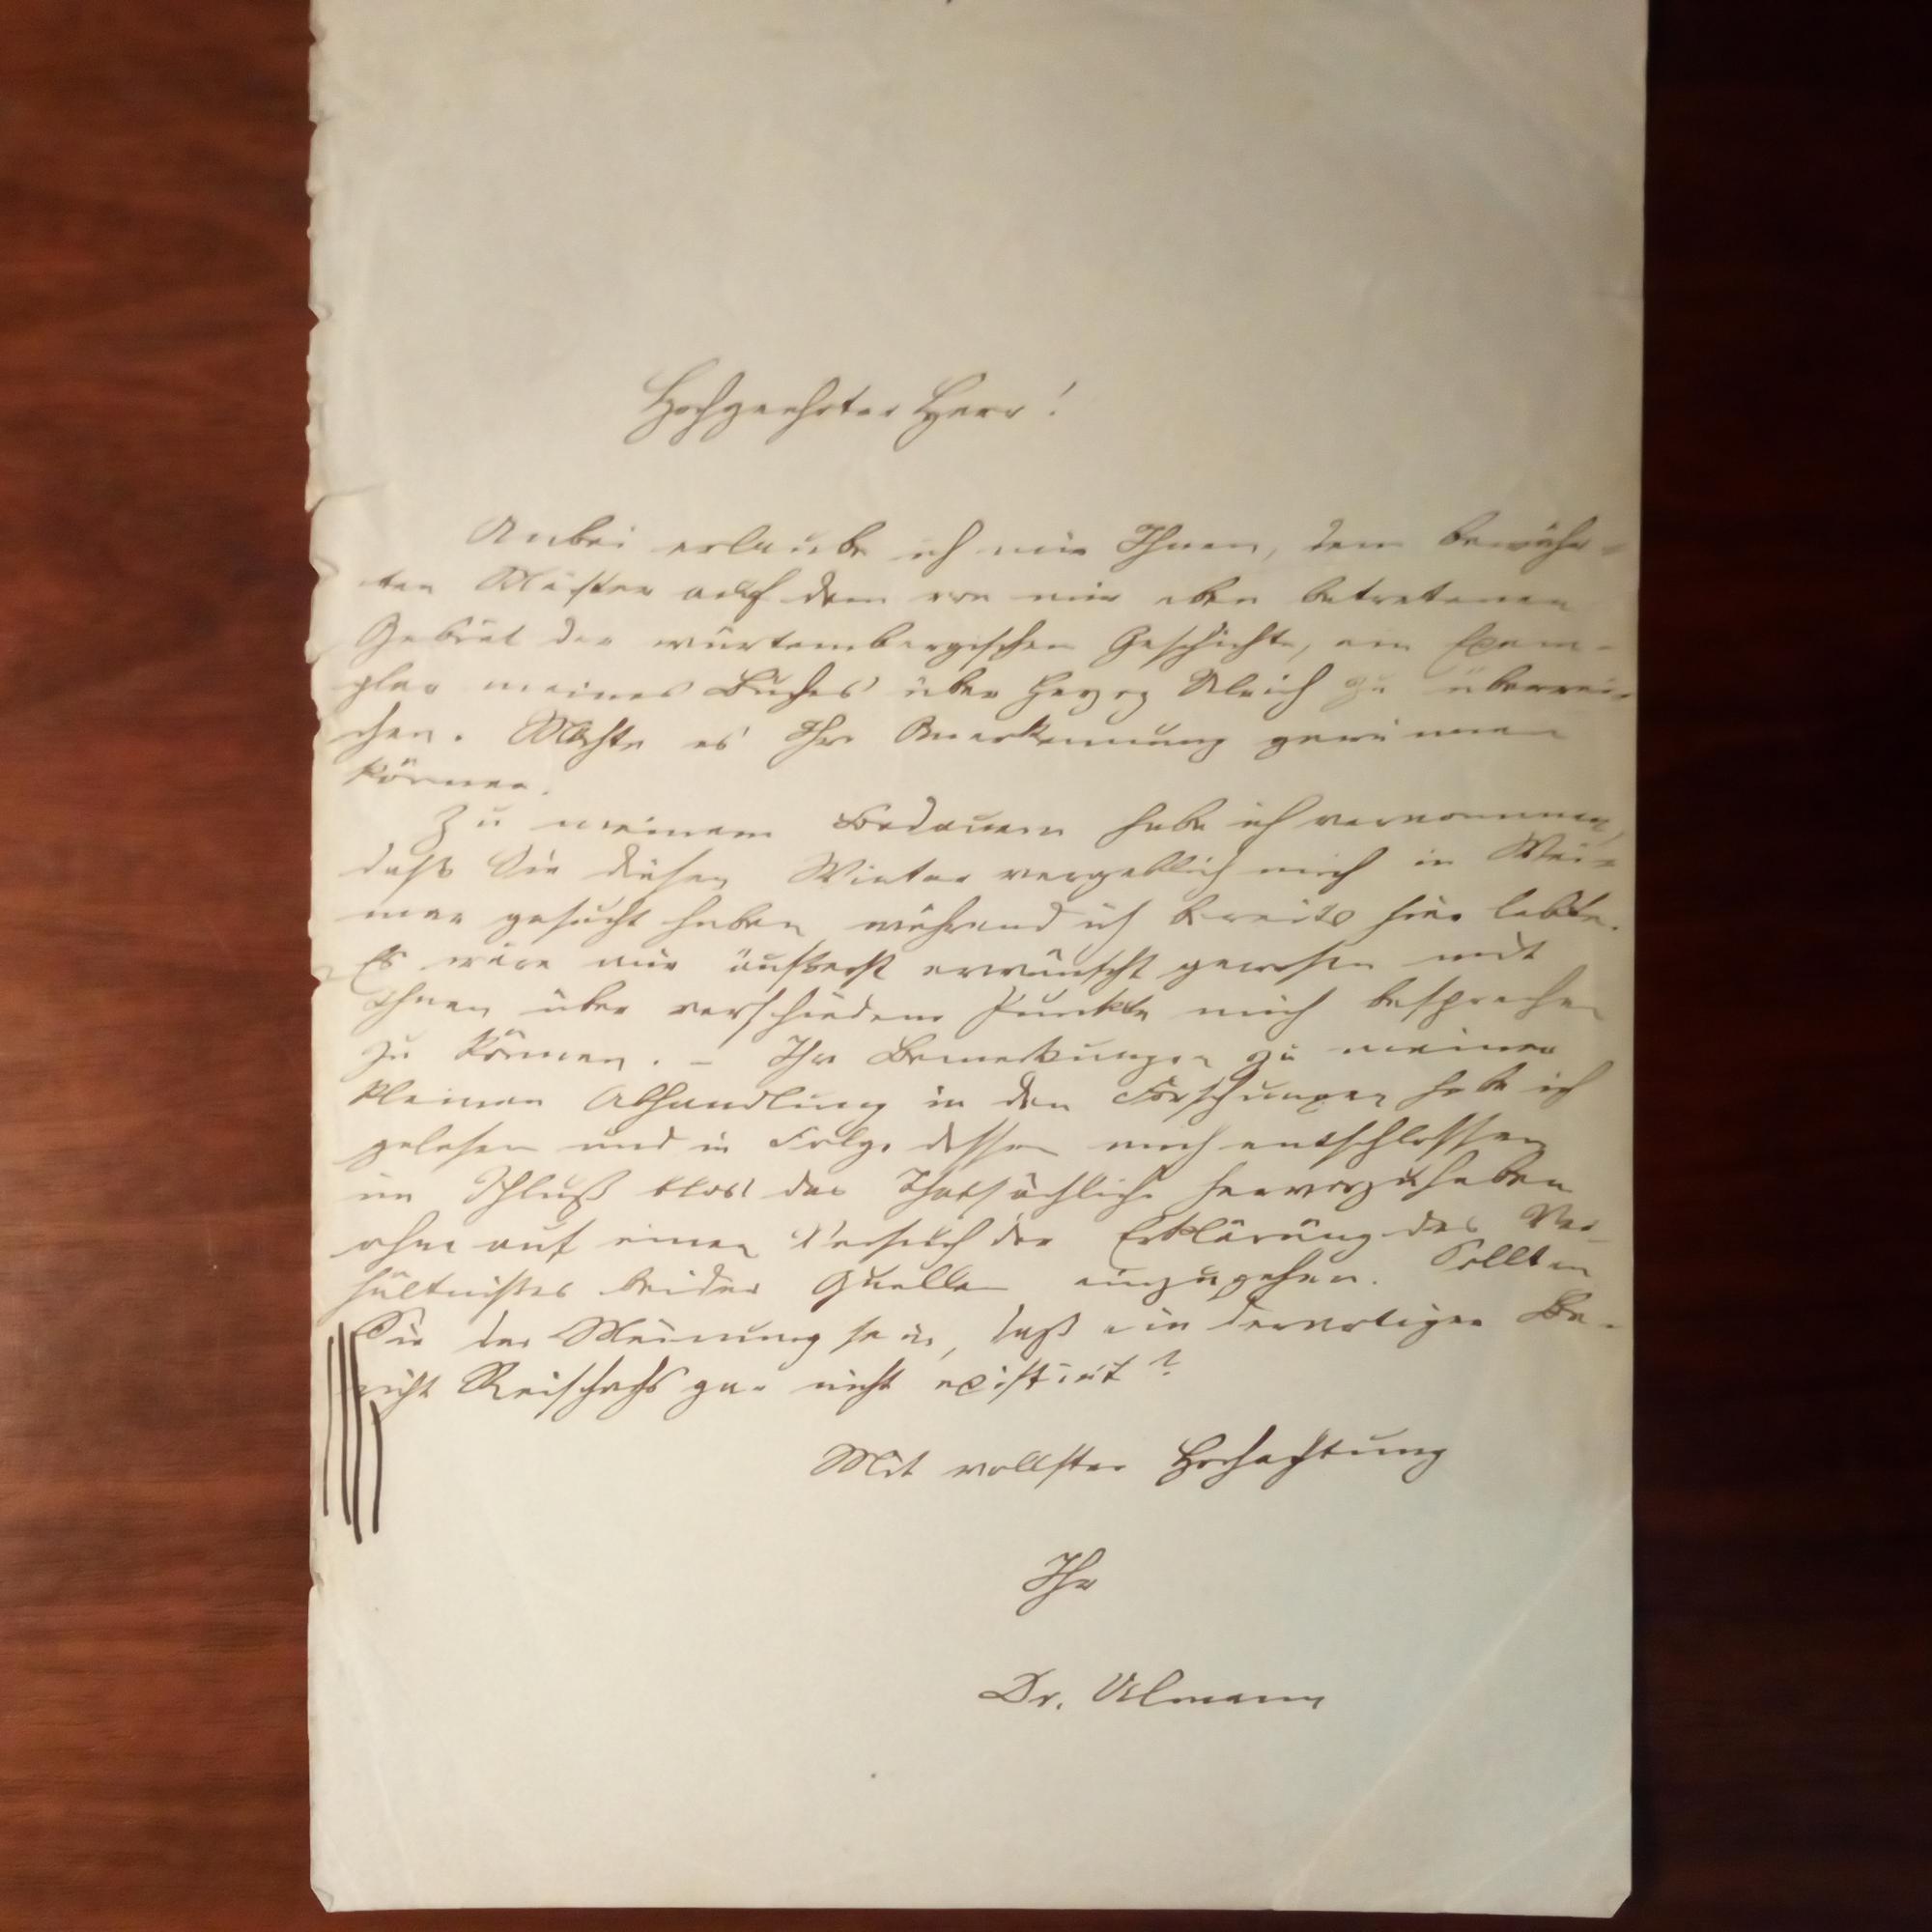 Hochgeehrter Herr!
Anbei erlaube ich mir Ihnen, dem bewähr-
ten Meister auf dem von mir eben betretenen
Gebiet der würtembergischen Geschichte, ein Exem-
plar meines Buches über Herzog Ulrich zu überrei-
chen. Möchte es Ihre Anerkennung gewinnen
können.
Zu meinem Bedauern habe ich vernommen,
daß Sie diesen Winter vergeblich mich in Wei-
mar gesucht haben während ich bereits hier lebte.
Es wäre mir äußerst erwünscht gewesen mit
Ihnen über verschiedene Punkte mich besprechen
zu können. – Ihre Bemerkungen zu meiner
kleinen Abhandlung in den Forschungen habe ich
gelesen und in Folge dessen mich entschlossen
im Schluß blos das Thatsächliche hervorzuheben
ohne auf einen Versuch der Erklärung des Ver-
hältnisses beider Quellen einzugehen. Sollten
Sie der Meinung sein, daß ein derartiger Be-
richt Reischachs gar nicht existirt?
Mit vollster Hochachtung
Ihr
Dr. Ulmann